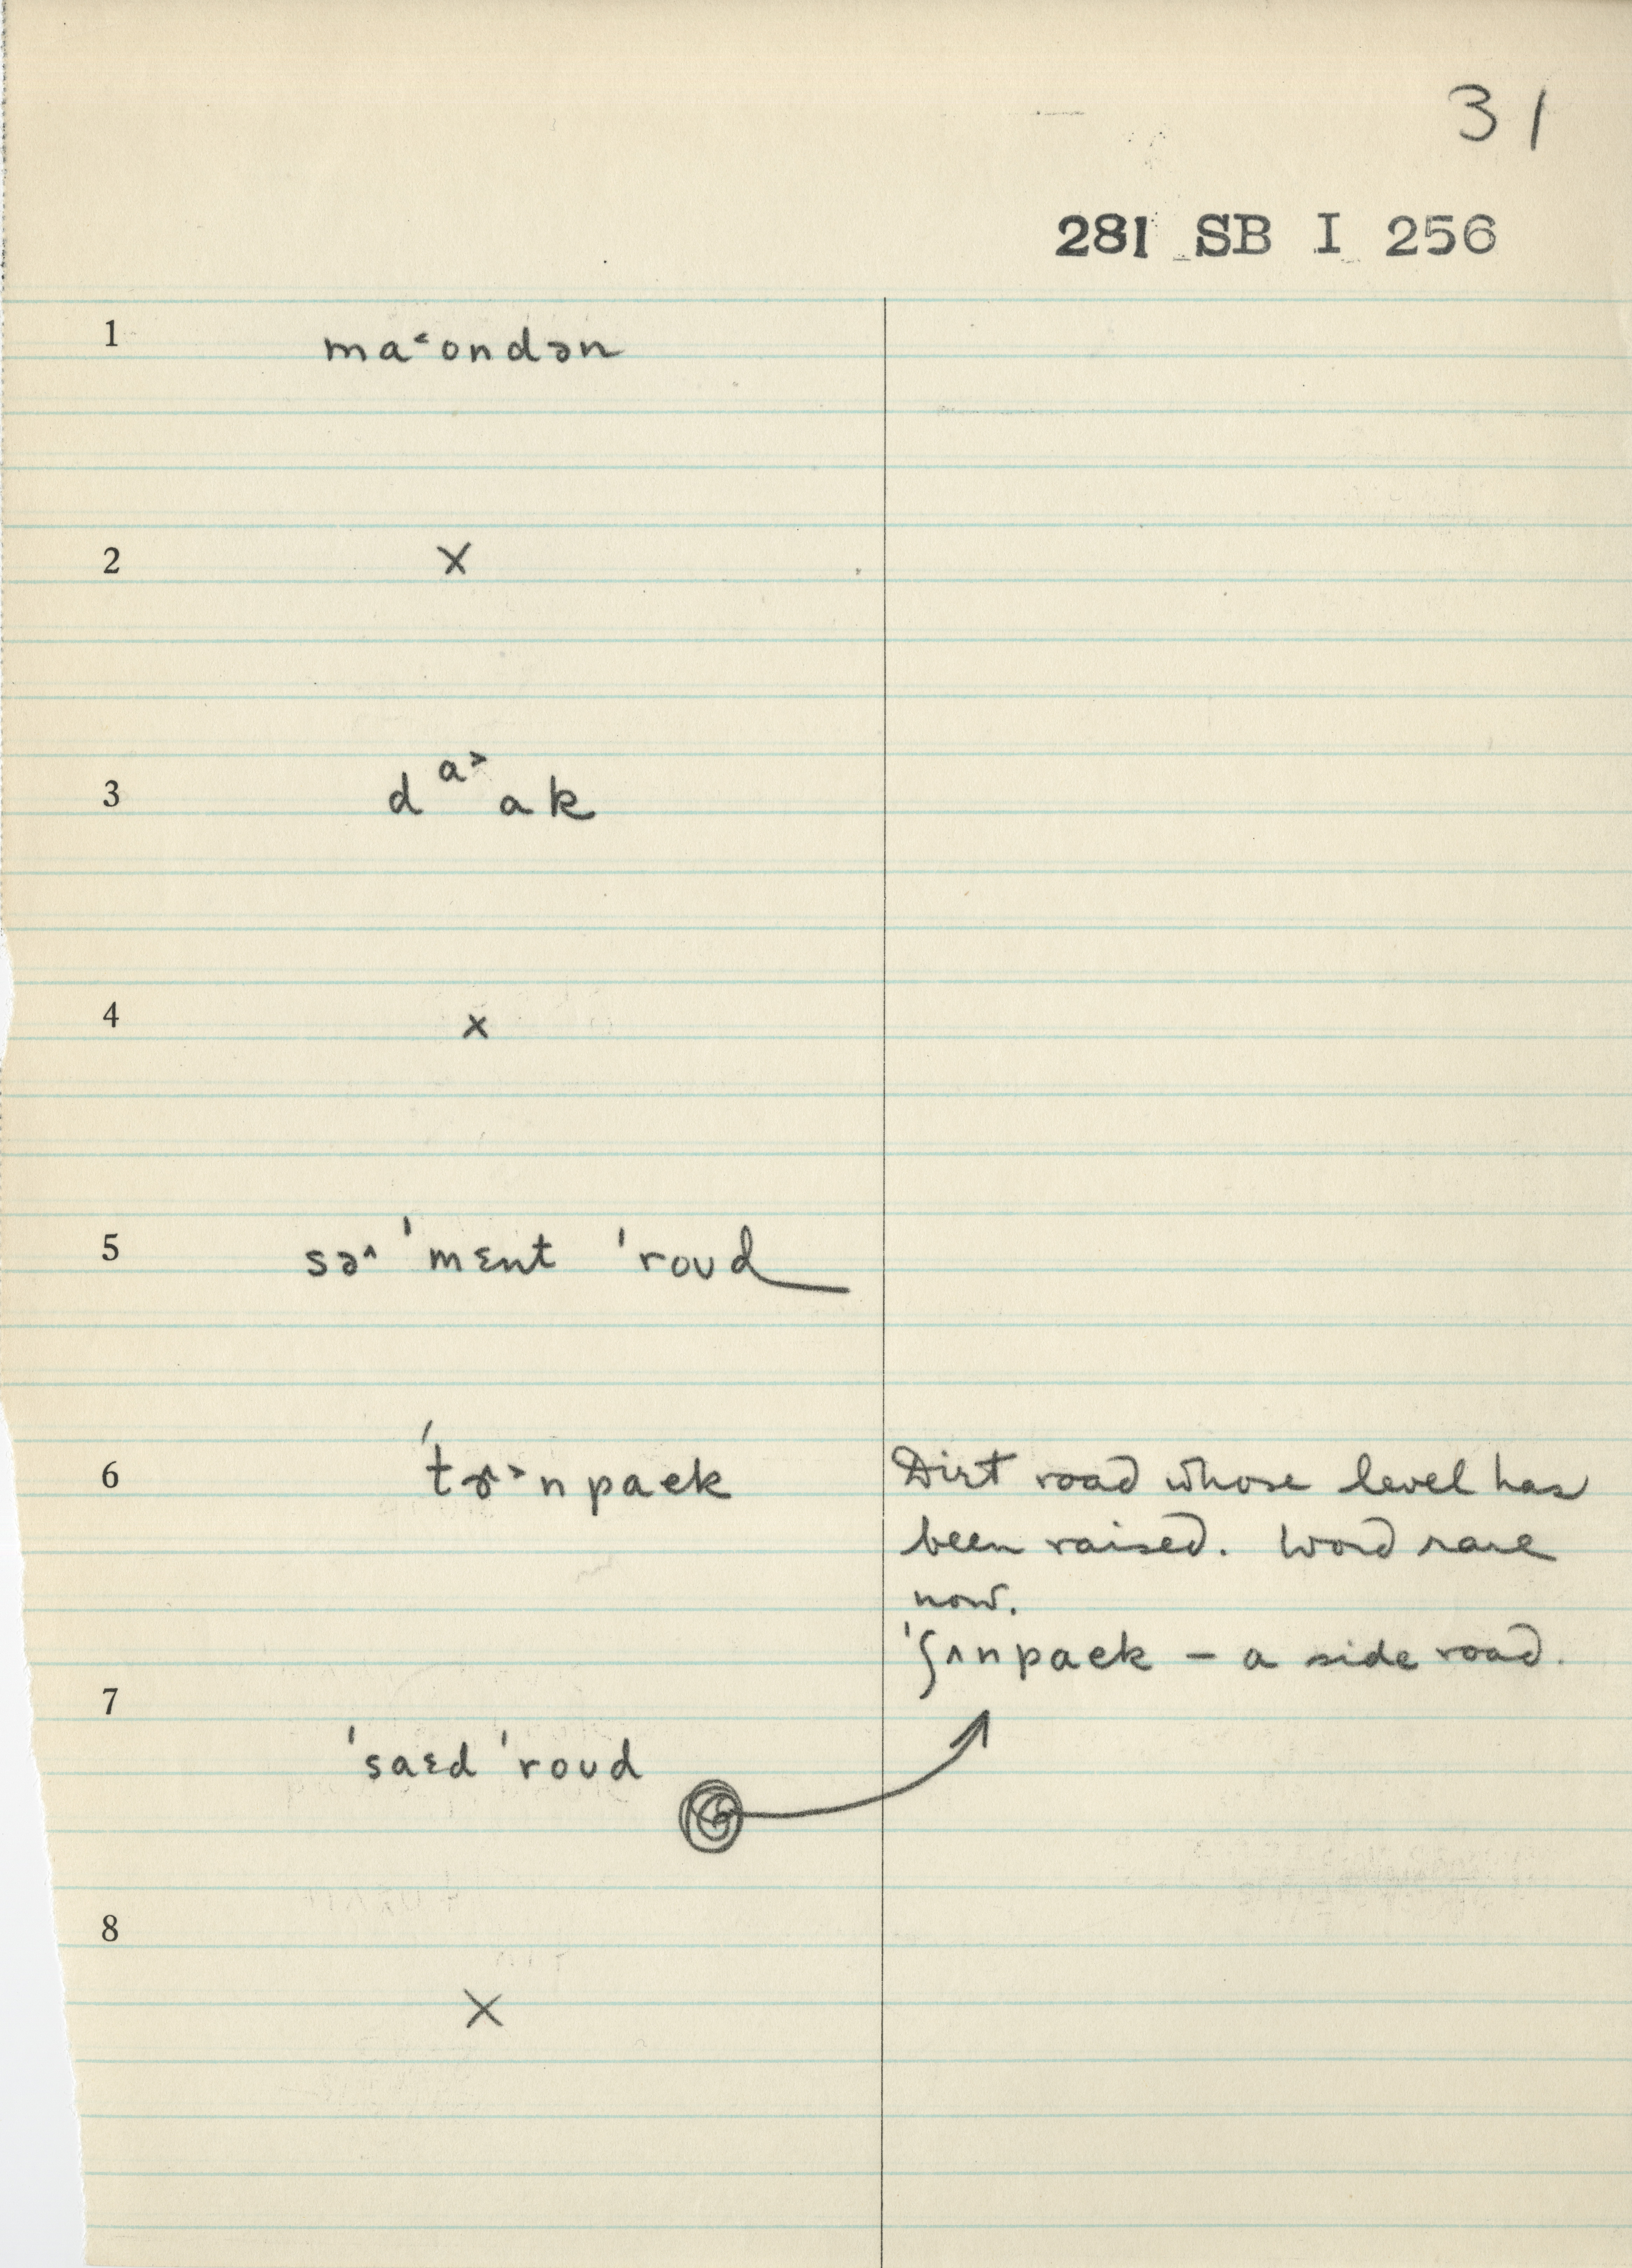 31
281 SB I 256
1 ma˂ondən
2 x
3 d a˃ ak
4 x
5 sə^ ˈmɛnt ˈroud
6 ˈtɚ˃npaek Dirt road whose level has
been raised. Word rare
now.
ˈʃʌnpaek – a side road.
7 ˈsaɛd ˈroud
8 x